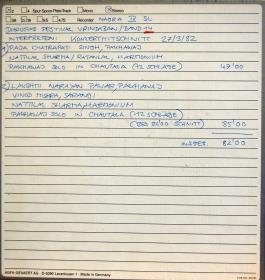 2 4 Spur-Spoor-Piste-Track Mono Stereo
38 19 9,5 4,75 Recorder NAGRA IV SL
DHRUPAD FESTIVAL VRINDABAN / BAND 14
INTERPRETEN: KONZERTMITSCHNITT 27/3/82
1) RAJA CHATRAPATI SINGH, PAKHAWAJ
NATTILAL SHARMA / RATANLAL, HARMONIUM
PAKHAWAJ SOLO IN CHAUTALA (12 SCHLÄGE) 47'00
2) LAKSHTI NARAYAN PAWAR, PAKHAWAJ
VINOD MISHRA, SARANGI
NATTILAL SHARMA, HARMONIUM
PAKHAWAJ SOLO IN CHAUTALA (12 SCHLÄGE)
SCHNITT) 35'00
INSGES. 82'00
AGFA-GEVAERT AG D-5090 Leverkusen 1 Made in Germany